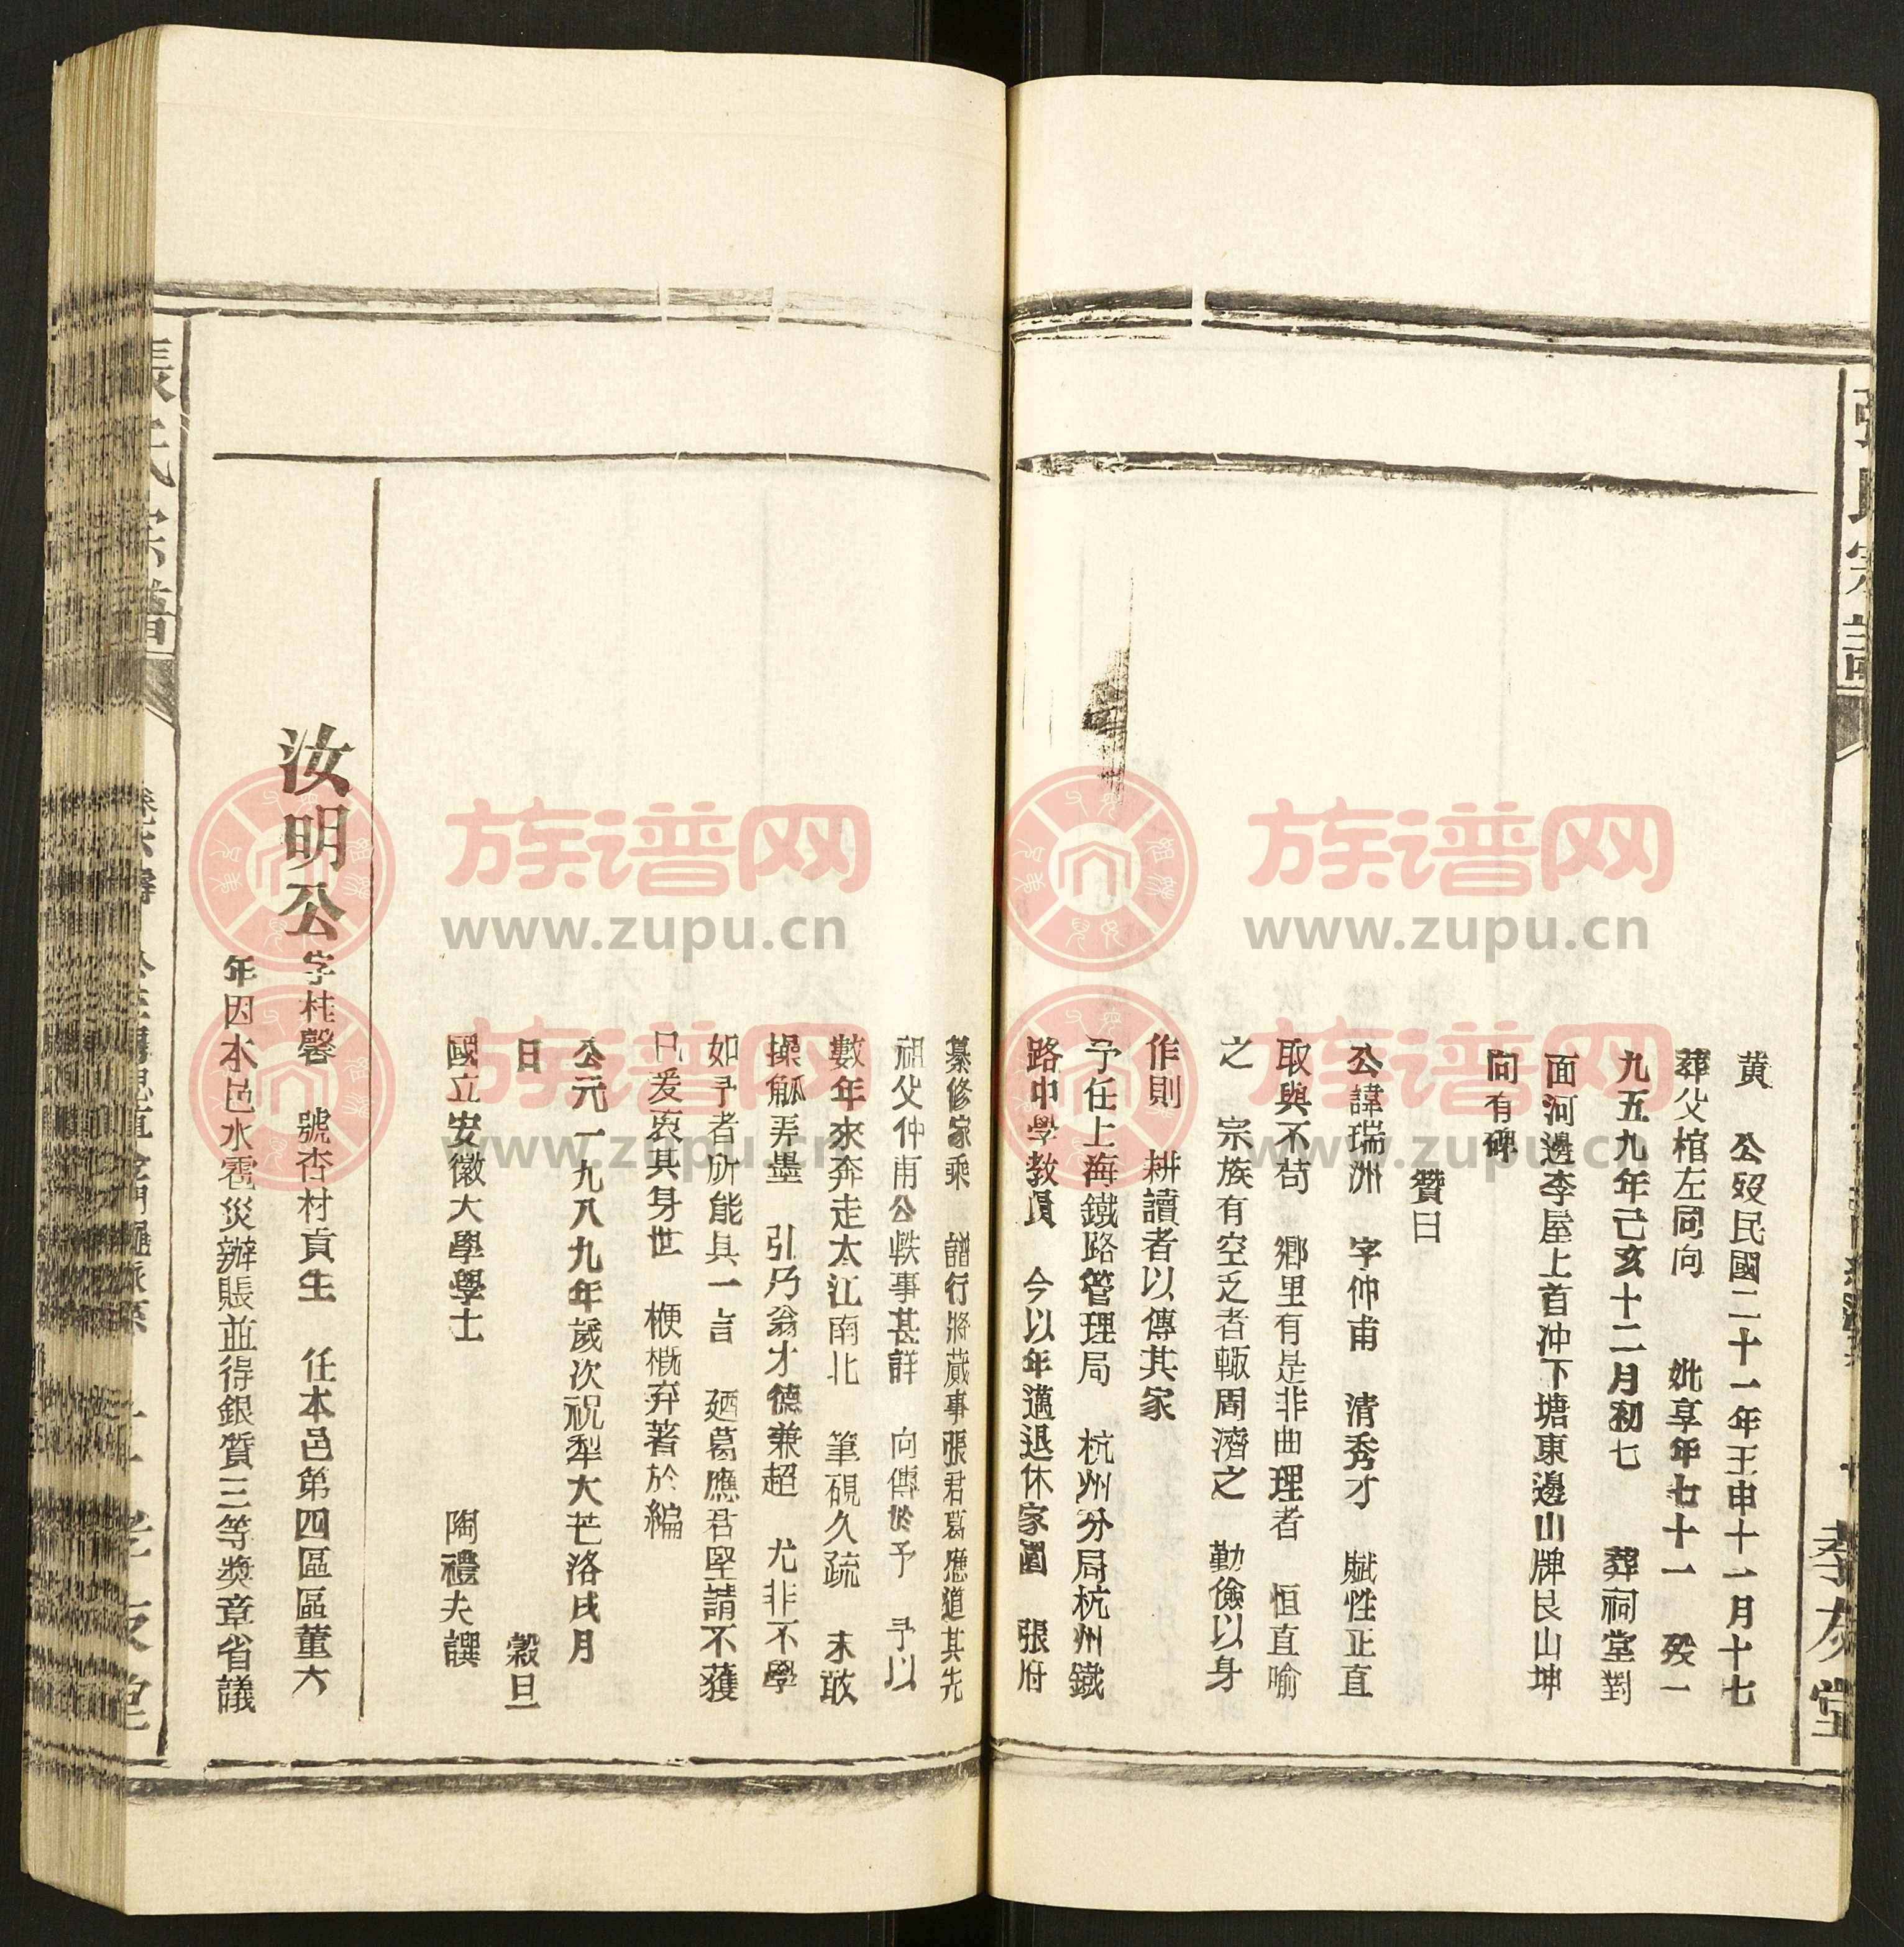 黄　公歿民國二十一年王申十一月十七
葬父棺左同向　妣享年七十一　殁一
九五九年己亥十二月初七　葬祠堂對
面河邊李屋上首冲下塘東邊山牌艮山坤
向有碑
贊曰
公諱瑞洲　字仲甫　清秀才　賦性正直
取與不苟　鄉里有是非曲理者　恒直喻
之　宗族有空乏者輙周濟之　勤儉以身
作則　耕讀者以傳其家
予任上海鐵路管理局　杭州分局杭州鐵
路中學教員　今以年邁退休家園　張府
纂修家乘　譜行將蕆事張君葛應道其先
祖父仲甫公軼事甚詳　向傳於予　予以
數年來奔走大江南北　筆硯久疏　未敢
操觚弄墨　引乃翁才德兼超　尤非不學
如予者所能具一言　廼葛應君堅請不獲
已爰裒其身世　梗概弁著於編
公元一九八九年歲次祝犁大芒洛戌月
日　穀旦
國立安徽大學學士　陶禮夫譔
汝明公字桂馨　號杏村貢生　任本邑第四區區董六
年因本邑水雹災辦賬並得銀質三等獎章省議
張氏宗譜
孝友堂
張氏宗譜
孝友堂
族谱网
www.zupu.cn
族谱网
www.zupu.cn
族谱网
www.zupu.cn
族谱网
www.zupu.cn